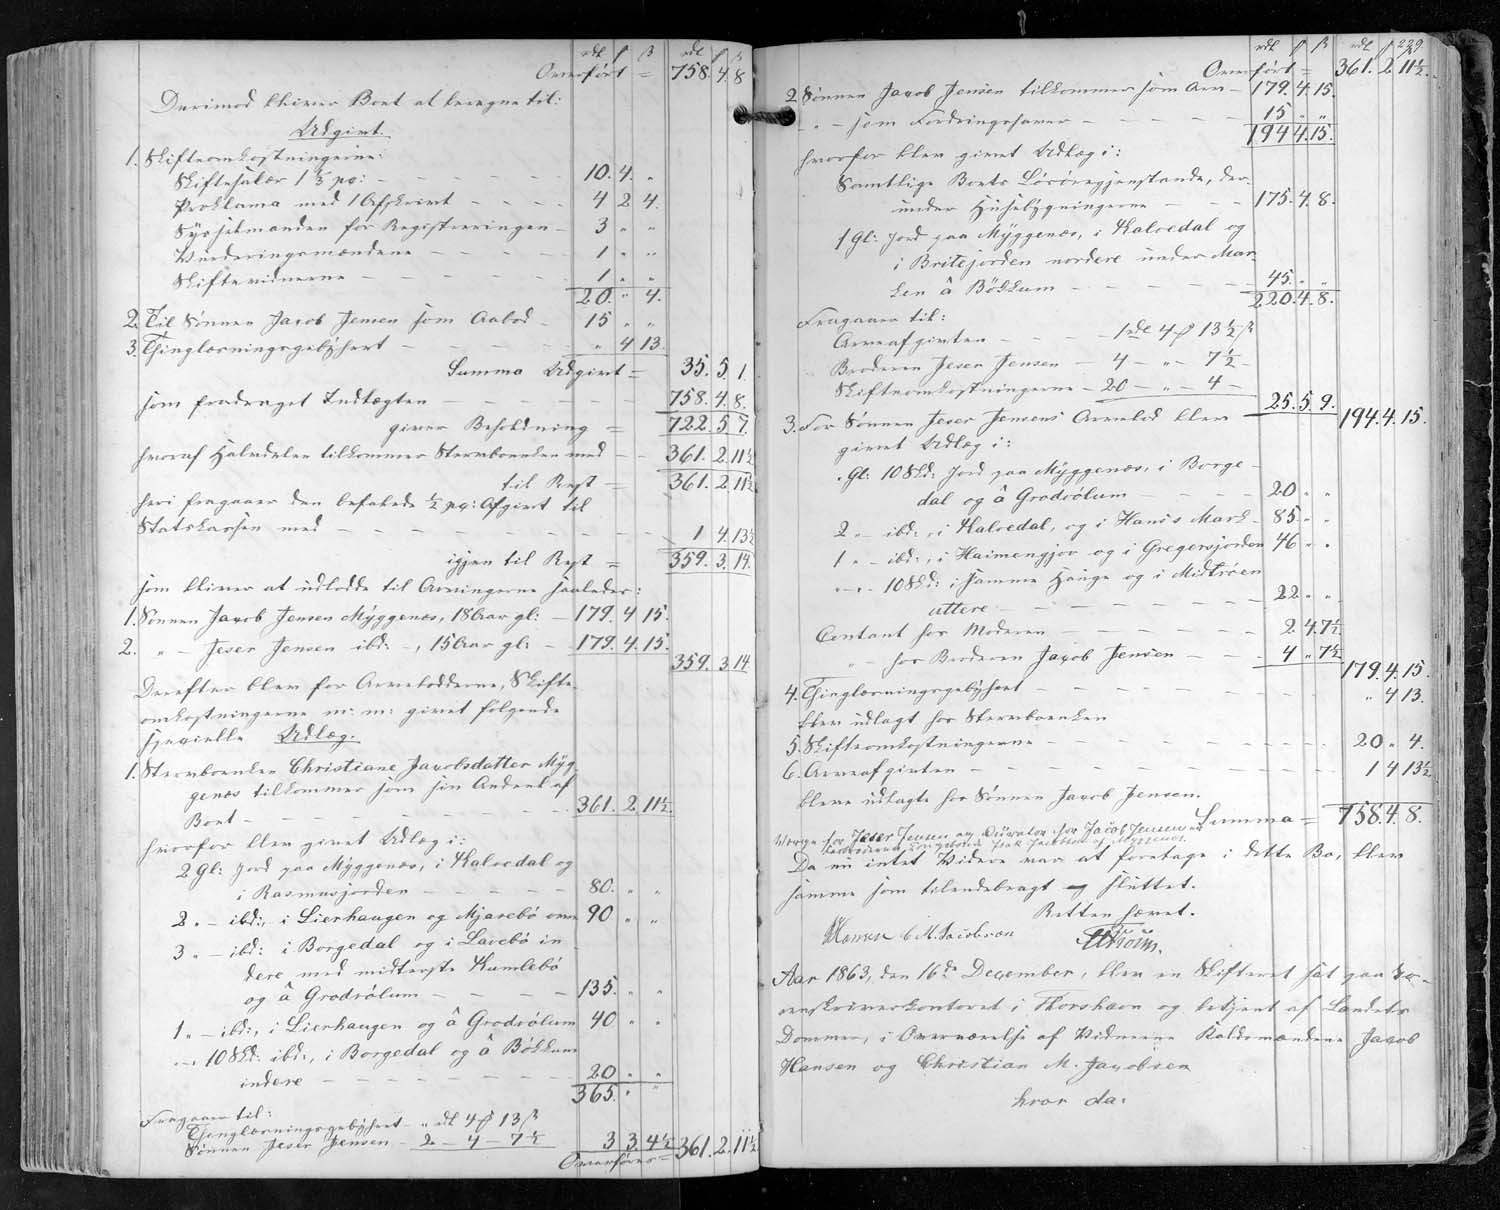 rdl ƒ ß rdl ƒ ß
Overført = 758. 4. 8
Derimod bliver Boet at beregne til:
Udgivt.
1. Skifteomkostningerne:
Skiftesalær 1 1/3 pC: - - - - 10. 4. "
Proklama med 1 Afskrivt - - - - 4 2 4.
Sysselmanden for Registreringen - 3 " "
Vurderingsmændene - - - - 1 " "
Skiftevidnerne - - - - 1 " "
20. " 4.
2. Til Sønnen Jacob Jensen som Aalod - 15 " "
3. Thinglæsningsgebyhret - - - " 4 13.
Summa Udgivt = 35. 5. 1.
som fradraget Indtægten - - - - 758. 4. 8.
giver Beholdning = 722. 5 7.
hvoraf Halvdelen tilkommer Stervboenken med - - 361. 2. 11½
til Rest = 361. 2. 11½
heri fragaaer den befalede ½ pC: Afgivt til
Statskassen med - - - - 1 4. 13½
igjen til Rest = 359. 3. 14.
som bliver at udlodde til Arvingerne saaledes:
1. Sønnen Jacob Jensen Myggenæs, 18 Aar gl: - 179. 4 15.
2. " - Jeser Jensen ibd: -, 15 Aar gl: - 179. 4. 15.
359. 3. 14.
Derefter blev for Arvelodderne, Skifte-
omkostningerne m: m: givet følgende
specielle Udlæg.
1. Stervboenken Christiane Jacobsdatter Myg
genæs tilkommer som sin Andeel af
Boet - - - - 361. 2. 11½.
hvorfor blev givet Udlæg i:
2 Gl: Jord paa Myggenæs, i Kalvedal og
i Rasmusjorden - - - - 80. " "
2 " - ibd:, i Lierhaugen og Mjavebö 90 " "
3 " - ibd: i Borgedal og i Lavebö in
dere med midterste Kumlebö
og â Grodvölum - - - - 135. " "
1 " - ibd:, i Lierhaugen og â Grodvölum 40 " "
" - 10 Skd: ibd:, i Borgedal og â Bökkum
indere - - - - 20 " "
365. " "
Fragaaer til:
Thinglæsningsgebyhret - " rdl 4 ƒ 13 ß
Sønnen Jeser Jensen - 2 - 4 - 7½ 3 3. 4½ 361. 2. 11½
Overføres =
229.
rdl ƒ ß rdl ƒ ß
Overført = 361. 2. 11½.
2. Sønnen Jacob Jensen tilkommer som Arv - 179. 4. 15.
- " - som Fordringshaver - - - - 15 " "
194 4. 15.
hvorfor blev givet Udlæg i:
Samtlige Boets Løsöregjenstande, der-
under Husebygningerne - - - 175. 4. 8.
1 Gl: Jord paa Myggenæs, i Kalvedal og
i Britejorden nordere under Mar
ken â Bökkum - - - - 45. " "
220. 4. 8.
Fragaaer til:
Arveafgivten - - - - 1 rdl 4 ƒ 13½ ß
Broderen Jeser Jensen - 4 - " - 7½ -
Skifteomkostningerne - 20 - " - 4 -
25. 5 9. 194. 4. 15.
3. For Sønnen Jeser Jensens Arvelod blev
givet Udlæg i:
" Gl: 10 Skd: Jord paa Myggenæs, i Borge-
dal og â Grodvölum - - - 20 " "
2 " - ibd:, i Kalvedal, og i Hanis Mark - 85 " "
1 " - ibd:, i Heimengjov og i Gregersjorden 46 " "
" - " - 10 Skd: i samme Hauge og i Midtröen
uttere - - - - 22 " "
Contant hos Moderen - - - - 2. 4. 7½
" - hos Broderen Jacob Jensen - - - 4 " 7½
179. 4. 15.
4. Thinglæsningsgebyhret - - - - " 4 13.
blev udlagt hos Stervboenken
5. Skifteomkostningerne - - - - 20 " 4.
6. Arveafgivten - - - - 1 4 13½
bleve udlagte hos Sønnen Jacob Jensen.
Summa = 758. 4. 8.
Værge for Jeser Jensen og Curator for Jacob Jensen er
Isak Jacobsen af Myggenæs.
Da nu intet Videre var at foretage i dette Bo, blev
samme som tilendebragt og sluttet.
Retten hævet.
JHansen C M. Jacobsen
Aar 1863, den 16de December, blev en Skifteret sat paa So-
renskriverkontoret i Thorshavn og betjent af Landets
Dommer, i Overværelse af Vidnerne Raldsmændene Jacob
Hansen og Christian M. Jacobsen
hvor da: